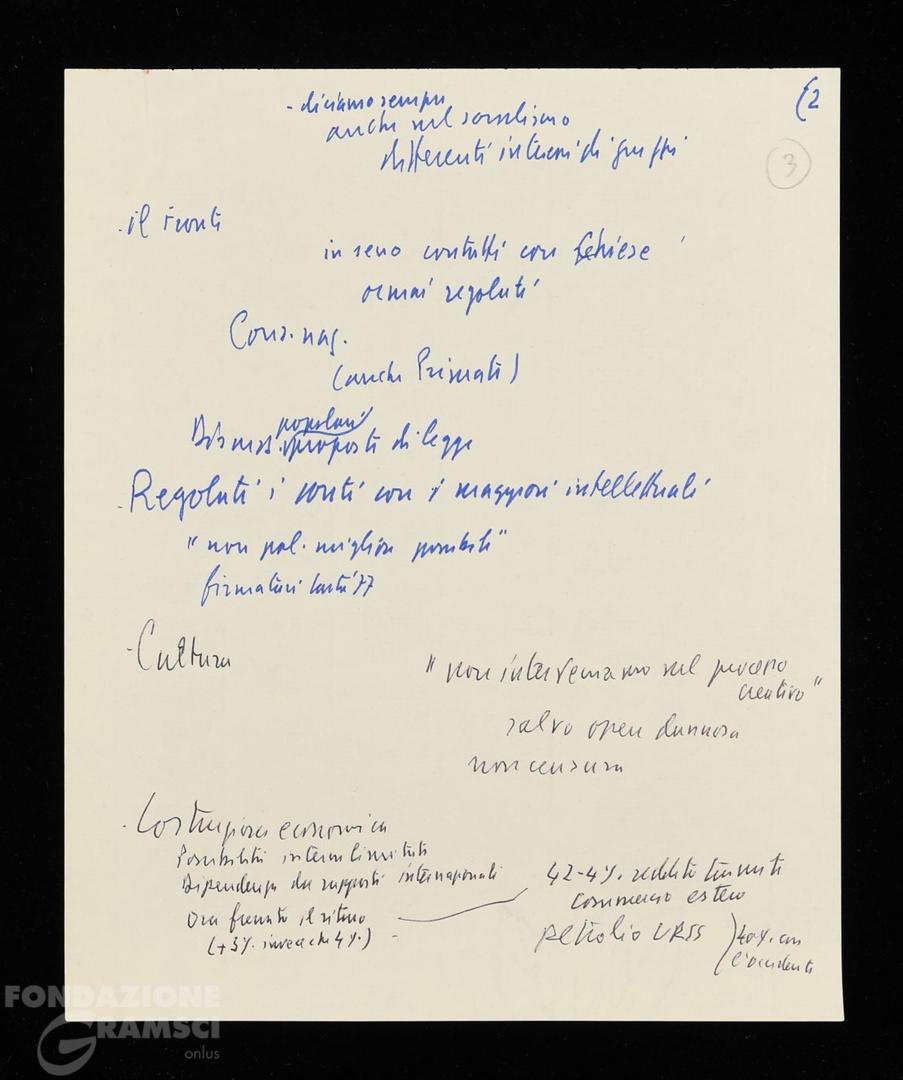 (2
- diciamo sempre
anche nel socialismo
differenti interessi di gruppi
3
· il fronte
in seno contatti con
ormai regolati
Cons. naz.
(anche Primate)
popolari
proposte di legge
· Regolati i conti con i maggiori intellettuali
" non pol. migliore possibile "
firmatari carta 77
- Cultura
" non interveniamo nel processo
creativo "
salvo opere dannose
non censura
· Costruzione economica
Possibilità interne limitate
Dipendenza da rapporti internazionali
Ora frenato il ritmo
(+3% invece che 4%) -
42-4%. reddito tramite
commercio estero
petrolio URSS
) 40% con
l'occidente
FONDAZIONE
GRAMSCI
onlus